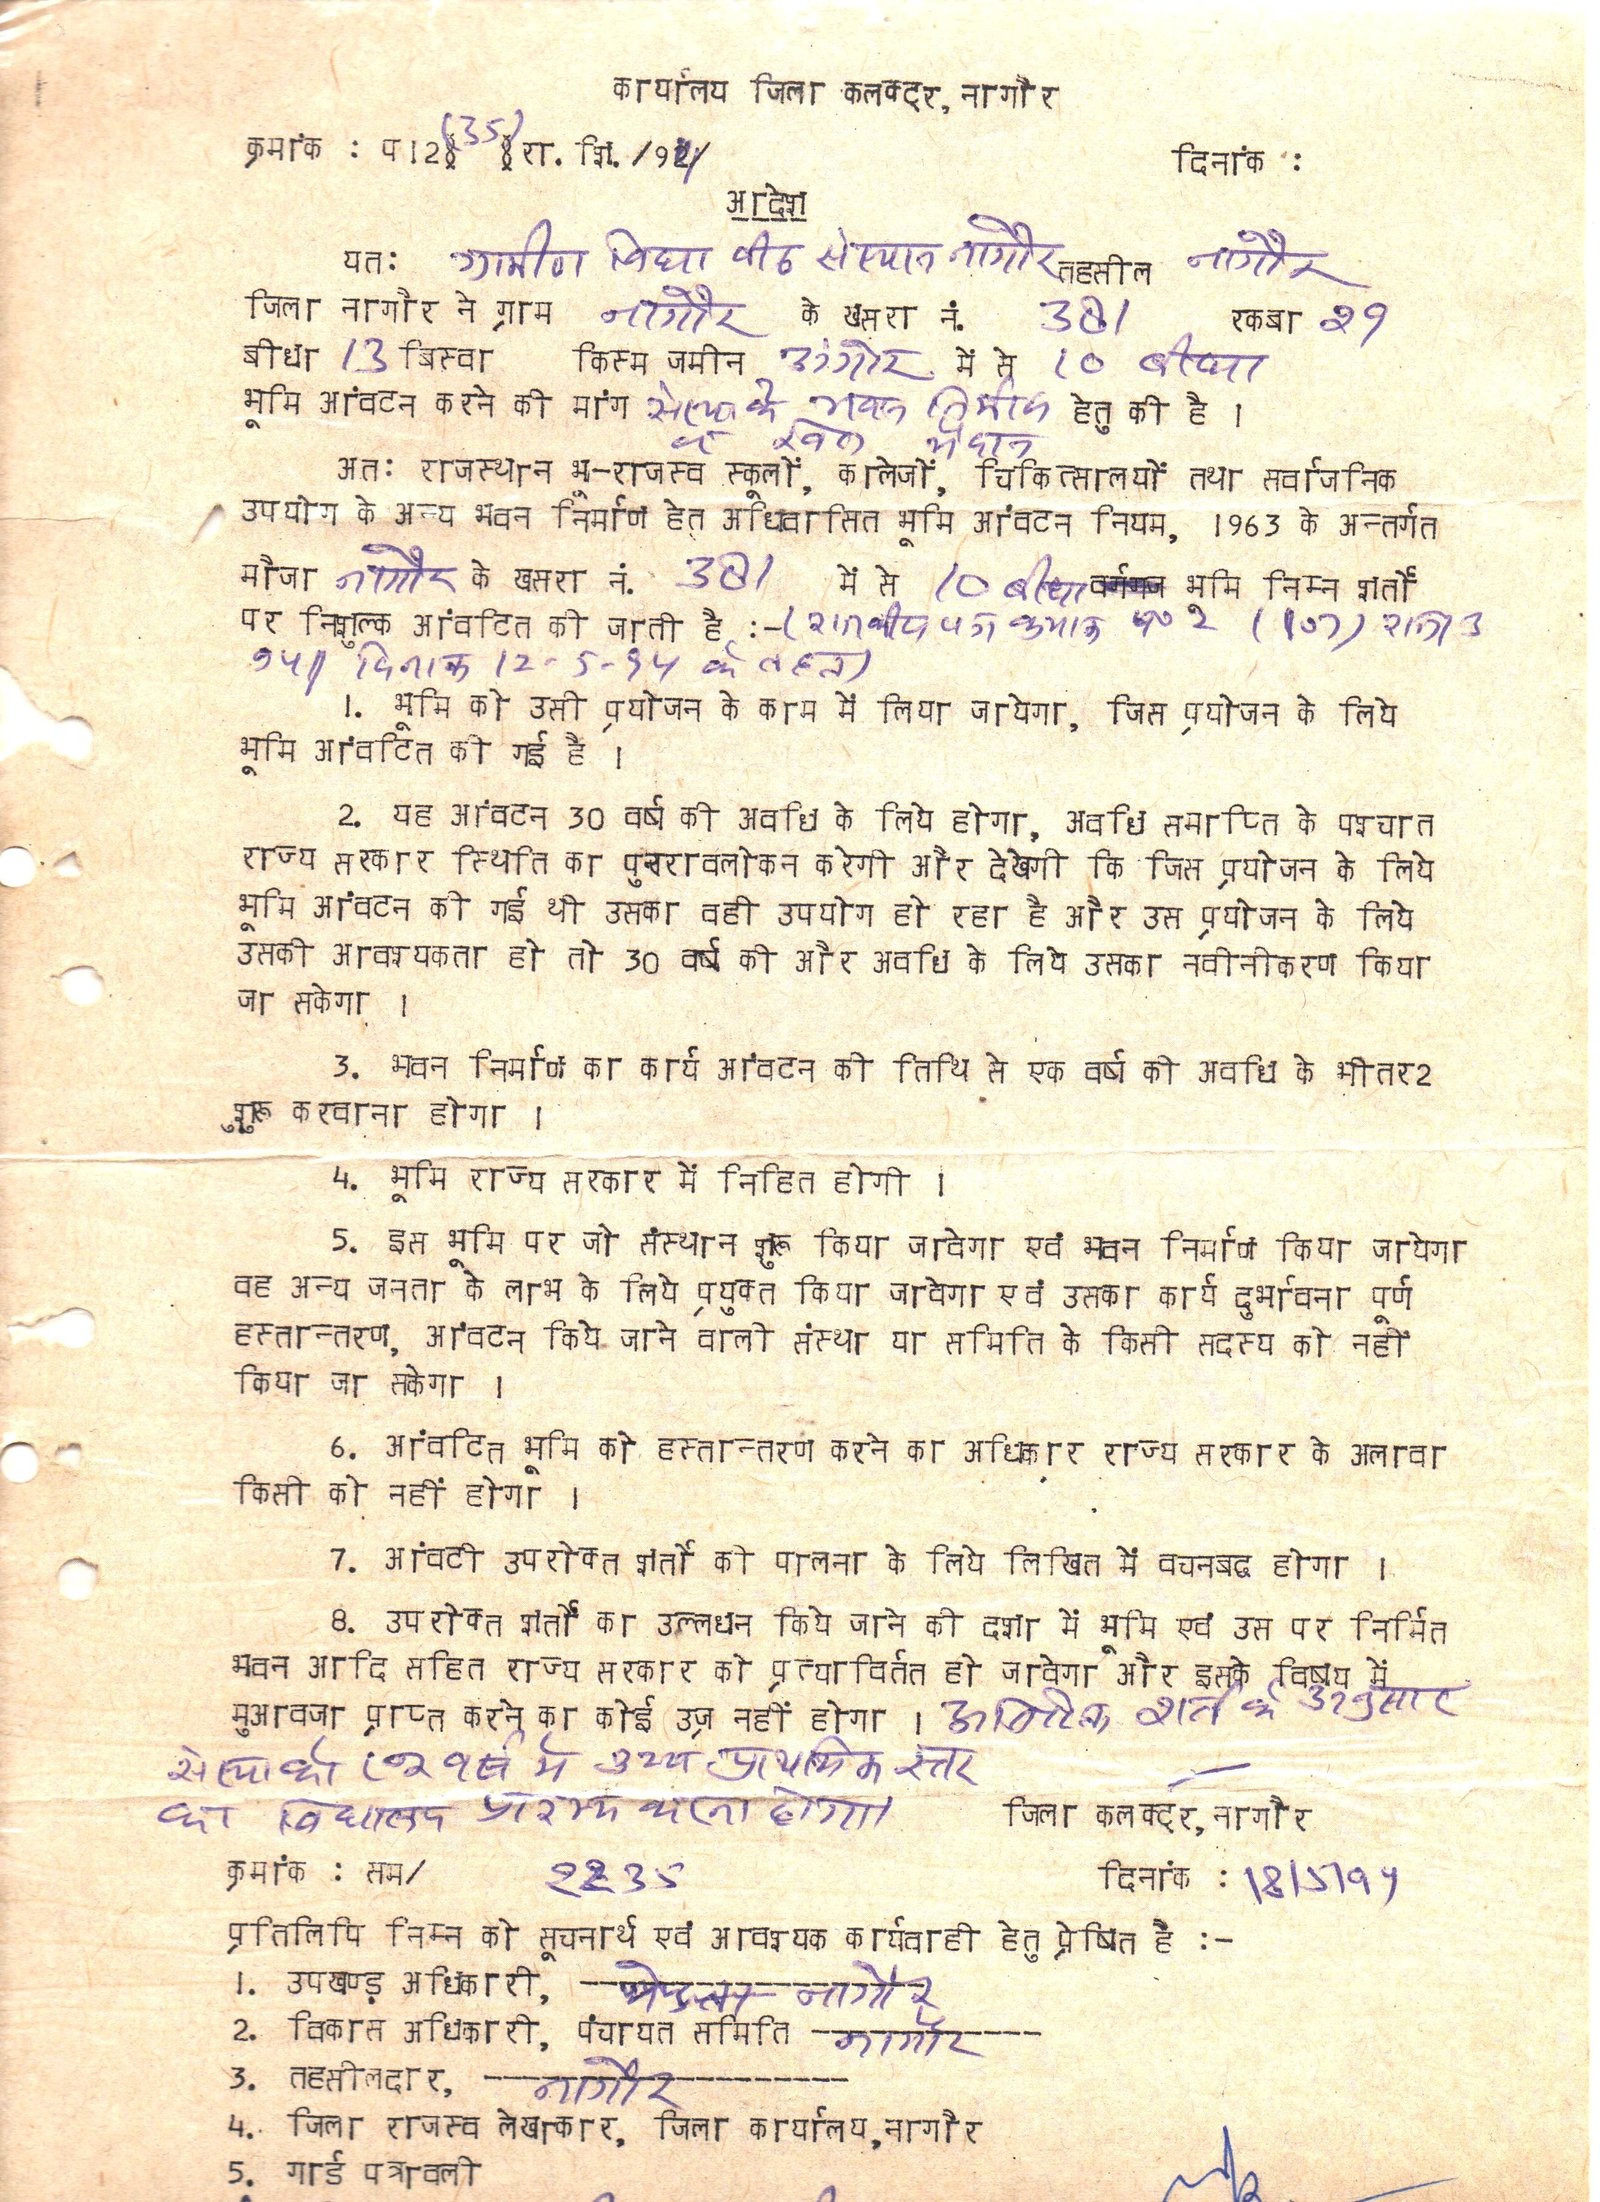 कार्यालय जिला कलक्ट्र, नागौर
क्रमांक : प12(35)रा. शि./94
दिनांक :
आदेश
यतः ग्रामीण विद्या पीठ संस्थान नागौर तहसील नागौर
जिला नागौर ने ग्राम नागौर के खसरा नं. 381 रकबा 29
बीघा 13 बिस्वा किस्म जमीन अंगोर में से 10 बीघा
भूमि आंवटन करने की मांग संस्था के भवन निर्माण हेतु की है ।
व खेल मैदान
अतः राजस्थान भू-राजस्व स्कूलों, कालेजों, चिकित्सालयों तथा सर्वाजनिक
उपयोग के अन्य भवन निर्माण हेतु अधिवासित भूमि आंवटन नियम, 1963 के अन्तर्गत
मौजा नागौर के खसरा नं. 381 में से 10 बीघा भूमि निम्न शर्तों
पर निशुल्क आंवटित की जाती है :-(राजकीय पत्र क्रमांक प०2 (107) राज 3
94 दिनांक 12-5-94 के तहत)
1. भूमि को उसी प्रयोजन के काम में लिया जायेगा, जिस प्रयोजन के लिये
भूमि आंवटित की गई है ।
2. यह आंवटन 30 वर्ष की अवधि के लिये होगा, अवधि समाप्ति के पश्चात
राज्य सरकार स्थिति का पुनरावलोकन करेगी और देखेगी कि जिस प्रयोजन के लिये
भूमि आंवटन की गई थी उसका वही उपयोग हो रहा है और उस प्रयोजन के लिये
उसकी आवश्यकता हो तो 30 वर्ष की और अवधि के लिये उसका नवीनीकरण किया
जा सकेगा ।
3. भवन निर्माण का कार्य आंवटन की तिथि से एक वर्ष की अवधि के भीतर2
शुरू करवाना होगा ।
4. भूमि राज्य सरकार में निहित होगी ।
5. इस भूमि पर जो संस्थान शुरू किया जावेगा एवं भवन निर्माण किया जायेगा
वह अन्य जनता के लाभ के लिये प्रयुक्त किया जावेगा एवं उसका कार्य दुर्भावना पूर्ण
हस्तान्तरण, आंवटन किये जाने वाली संस्था या समिति के किसी सदस्य को नहीं
किया जा सकेगा ।
6. आंवटित भूमि को हस्तान्तरण करने का अधिकार राज्य सरकार के अलावा
किसी को नहीं होगा ।
7. आंवटी उपरोक्त शर्तों की पालना के लिये लिखित में वचनबद्ध होगा ।
8. उपरोक्त शर्तों का उल्लधन किये जाने की दशा में भूमि एवं उस पर निर्मित
भवन आदि सहित राज्य सरकार को प्रत्यावर्तित हो जावेगा और इसके विषय में
मुआवजा प्राप्त करने का कोई उज्र नहीं होगा । अतिरिक्त शर्त के अनुसार
संस्था को 2 वर्ष में उच्च प्राथमिक स्तर
का विद्यालय प्रारम्भ करना होगा।
जिला कलक्ट्र, नागौर
क्रमांक : सम/ 2235
दिनांक : 18/5/94
प्रतिलिपि निम्न को सूचनार्थ एवं आवश्यक कार्यवाही हेतु प्रेषित है :-
1. उपखण्ड़ अधिकारी, नागौर
2. विकास अधिकारी, पंचायत समिति नागौर
3. तहसीलदार, नागौर
4. जिला राजस्व लेखाकार, जिला कार्यालय, नागौर
5. गार्ड पत्रावली